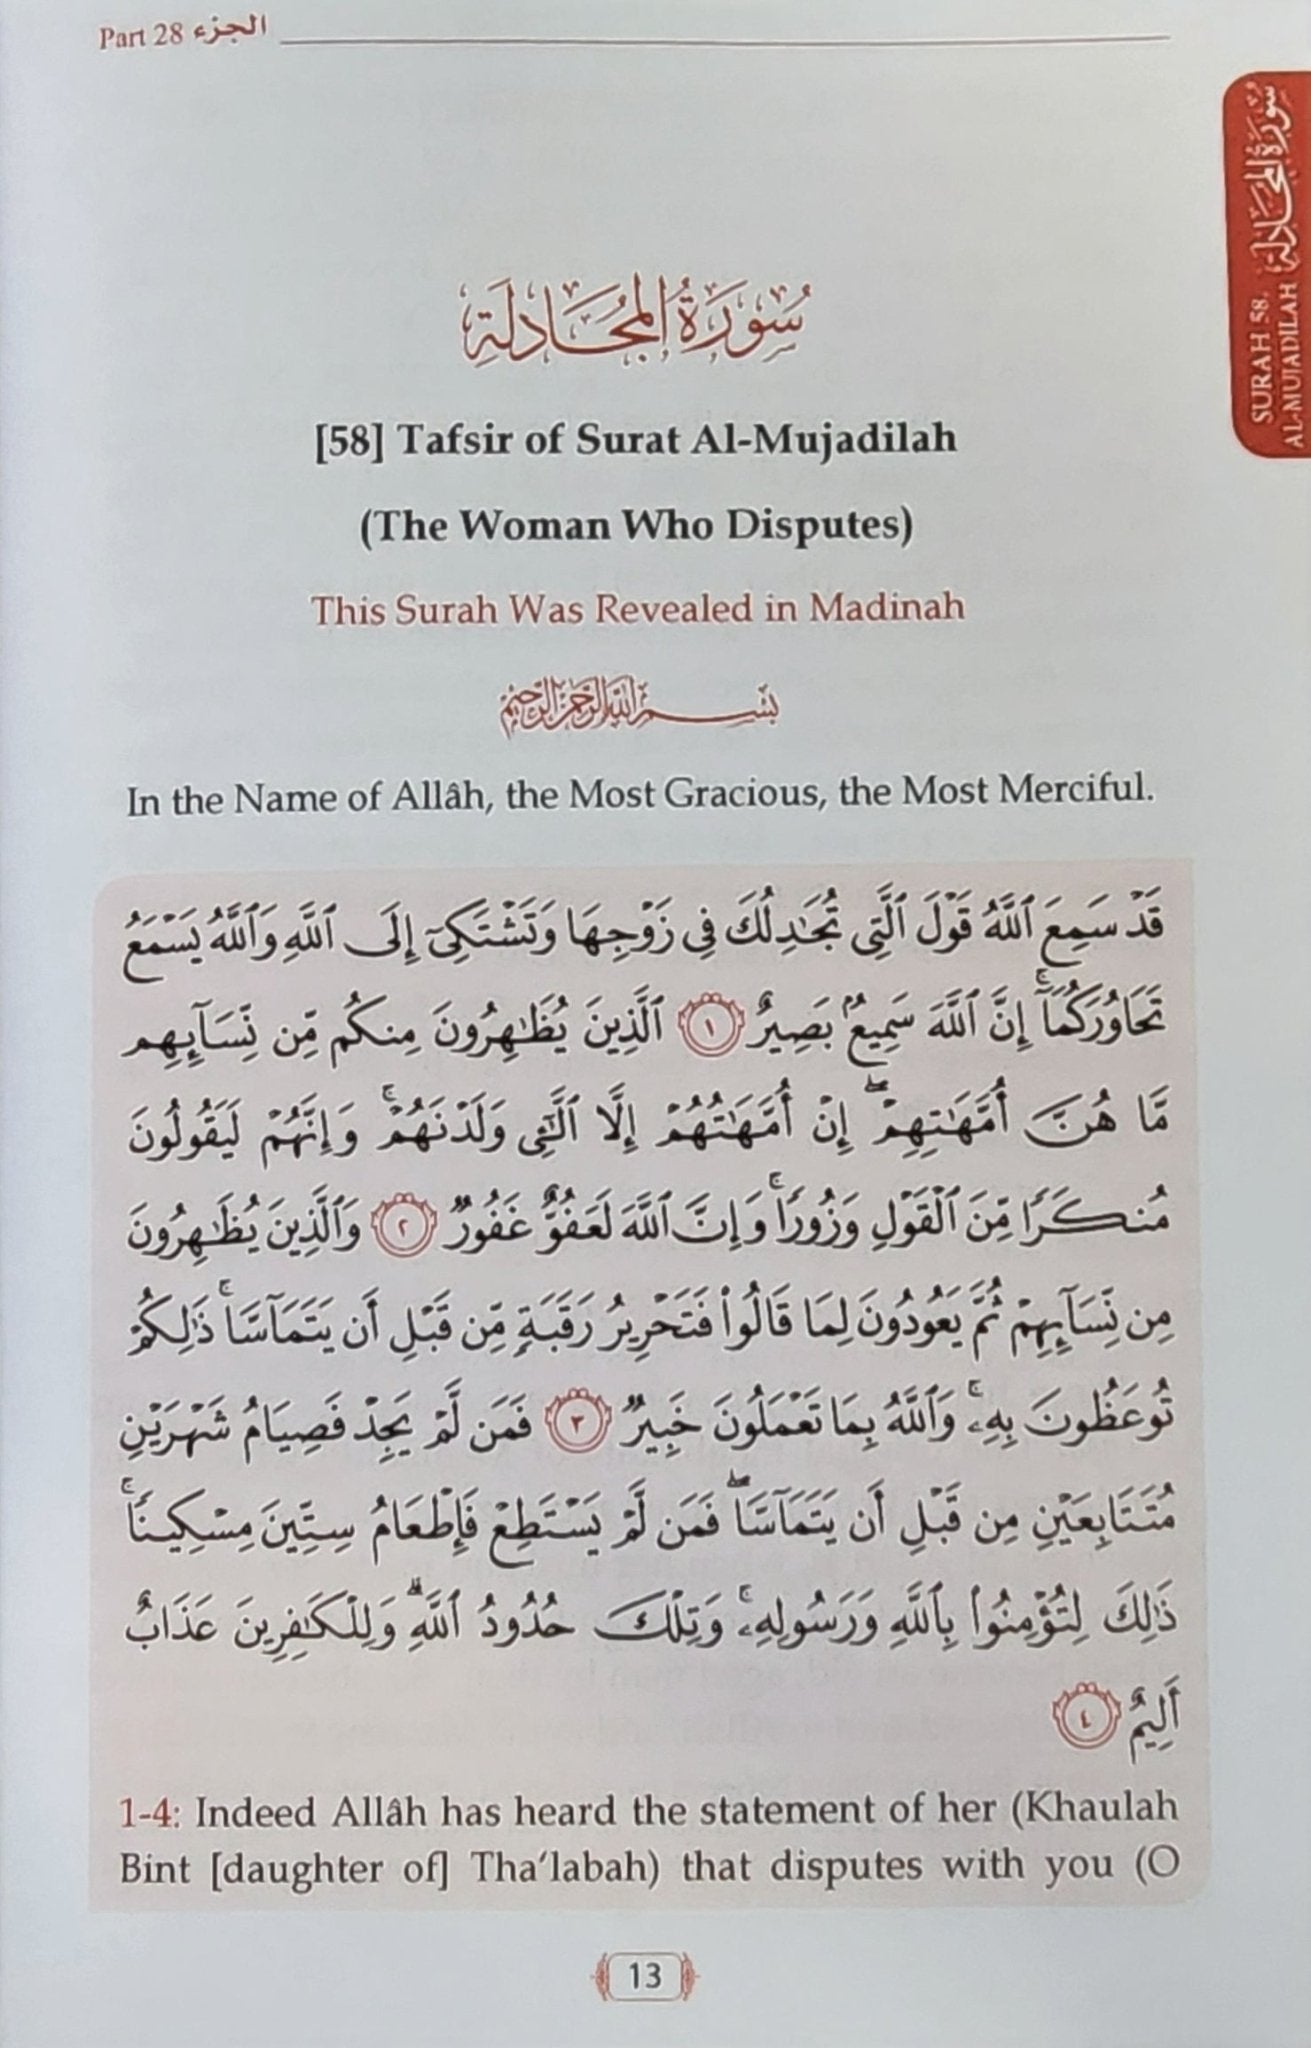 Part 28 الجزء
سُورَةُ المُجَادلَةِ
SURAH 58.
AL-MUJADILAH
سُورَةُ المُجَادلَةِ
[58] Tafsir of Surat Al-Mujadilah
(The Woman Who Disputes)
This Surah Was Revealed in Madinah
بِسْمِ اللَّهِ الرَّحْمَٰنِ الرَّحِيمِ
In the Name of Allâh, the Most Gracious, the Most Merciful.
قَدْ سَمِعَ ٱللَّهُ قَوْلَ ٱلَّتِى تُجَـٰدِلُكَ فِى زَوْجِهَا وَتَشْتَكِىٓ إِلَى ٱللَّهِ وَٱللَّهُ يَسْمَعُ
تَحَاوُرَكُمَآ ۚ إِنَّ ٱللَّهَ سَمِيعٌۢ بَصِيرٌ ١ ٱلَّذِينَ يُظَـٰهِرُونَ مِنكُم مِّن نِّسَآئِهِم
مَّا هُنَّ أُمَّهَـٰتِهِمْ ۖ إِنْ أُمَّهَـٰتُهُمْ إِلَّا ٱلَّـٰٓـِٔى وَلَدْنَهُمْ ۚ وَإِنَّهُمْ لَيَقُولُونَ
مُنكَرًا مِّنَ ٱلْقَوْلِ وَزُورًا ۚ وَإِنَّ ٱللَّهَ لَعَفُوٌّ غَفُورٌ ٢ وَٱلَّذِينَ يُظَـٰهِرُونَ
مِن نِّسَآئِهِمْ ثُمَّ يَعُودُونَ لِمَا قَالُوا۟ فَتَحْرِيرُ رَقَبَةٍ مِّن قَبْلِ أَن يَتَمَآسَّا ۚ ذَٰلِكُمْ
تُوعَظُونَ بِهِۦ ۚ وَٱللَّهُ بِمَا تَعْمَلُونَ خَبِيرٌ ٣ فَمَن لَّمْ يَجِدْ فَصِيَامُ شَهْرَيْنِ
مُتَتَابِعَيْنِ مِن قَبْلِ أَن يَتَمَآسَّا ۖ فَمَن لَّمْ يَسْتَطِعْ فَإِطْعَامُ سِتِّينَ مِسْكِينًا ۚ
ذَٰلِكَ لِتُؤْمِنُوا۟ بِٱللَّهِ وَرَسُولِهِۦ ۚ وَتِلْكَ حُدُودُ ٱللَّهِ ۗ وَلِلْكَـٰفِرِينَ عَذَابٌ
أَلِيمٌ ٤
1-4: Indeed Allâh has heard the statement of her (Khaulah
Bint [daughter of] Tha‘labah) that disputes with you (O
13